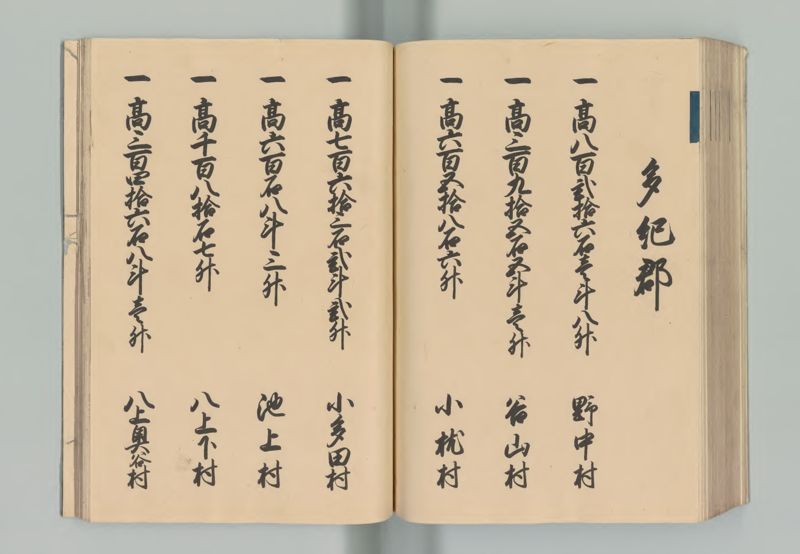 多紀郡
一 高八百弐拾六石壱斗八升 野中村
一 高三百九拾五石五斗壱升 谷山村
一 高六百五拾八石六升 小枕村
一 高七百六拾三石弐斗弐升 小多田村
一 高六百石八斗三升 池上村
一 高千百八拾石七升 八上下村
一 高三百四拾六石八斗壱升 八上奥谷村